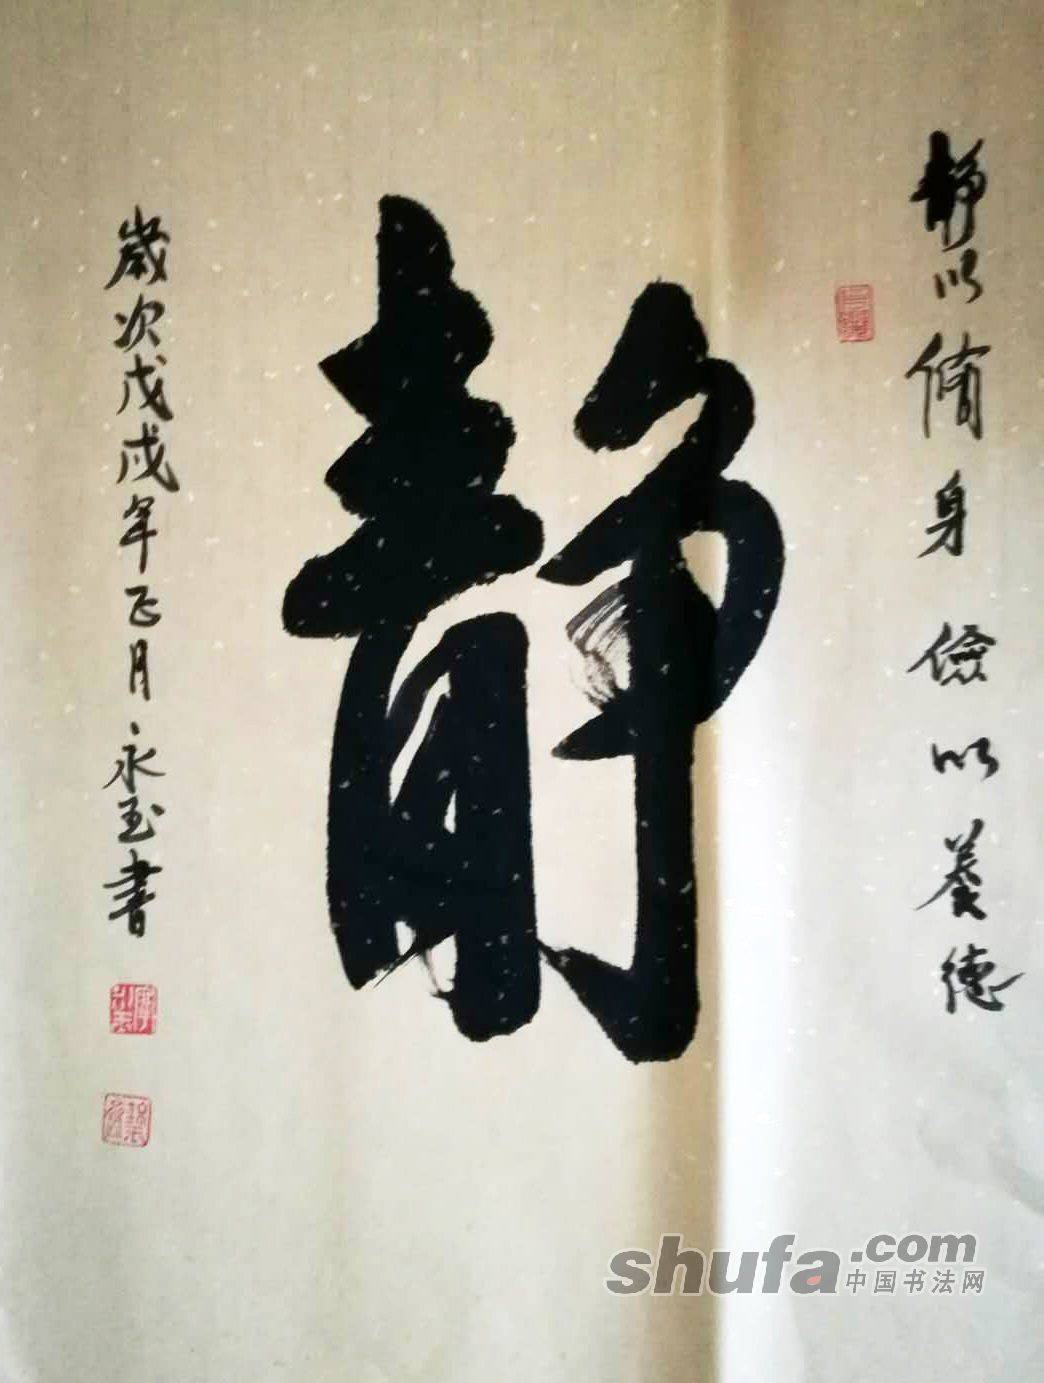 静以脩身儉以養德
静
歲次戊戌年正月永玉書
shufa.com
中国书法网